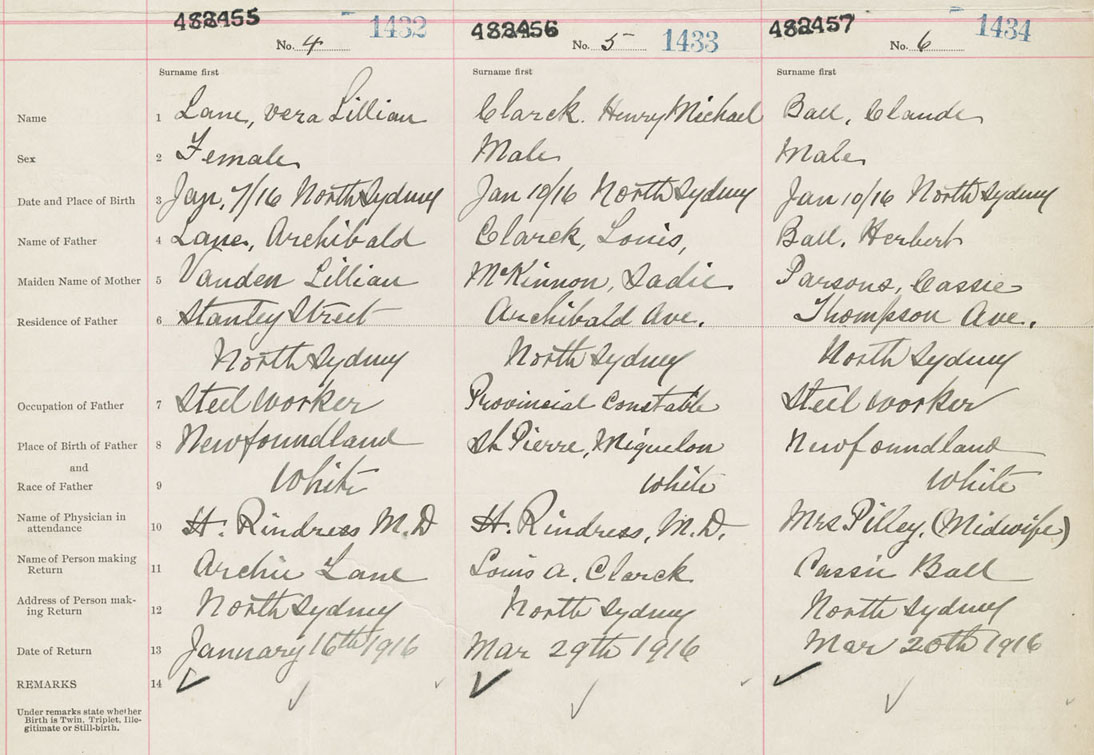 482455 482456 482457
No. 4 1432 No. 5 1433 No. 6 1434
Surname first Surname first Surname first
Name 1 Lane, Vera Lillian Clarck. Henry Michael Ball, Claude
Sex 2 Female Male Male
Date and Place of Birth 3 Jan, 7/16 North Sydney Jan 10/16 North Sydney Jan 10/16 North Sydney
Name of Father 4 Lane, Archibald Clarck, Louis, Ball, Herbert
Maiden Name of Mother 5 Vanden Lillian McKinnon, Sadie Parsons, Cassie
Residence of Father 6 Stanley Street Archibald Ave. Thompson Ave.
North Sydney North Sydney North Sydney
Occupation of Father 7 Steel Worker Provincial Constable Steel Worker
Place of Birth of Father 8 Newfoundland St Pierre, Miquelon Newfoundland
and
Race of Father 9 White White White
Name of Physician in
attendance 10 H. Rindress M.D H. Rindress, M.D. Mrs Pilley, (Midwife)
Name of Person making
Return 11 Archie Lane Louis A. Clarck Cassie Ball
Address of Person mak-
ing Return 12 North Sydney North Sydney North Sydney
Date of Return 13 January 16th 1916 Mar 29th 1916 Mar 20th 1916
REMARKS 14
Under remarks state whether
Birth is Twin, Triplet, Ille-
gitimate or Still-birth.